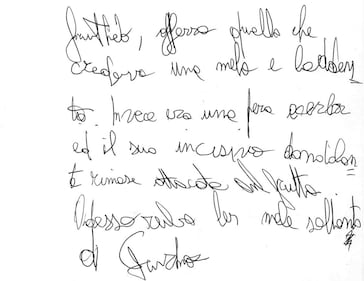 frutteto, afferrò quello che
credeva una mela e l'adden=
tò. Invece era una pera acerba
ed il suo incisivo dondolan=
te rimase attaccato al frutto.
Adesso ruba le mele soltanto